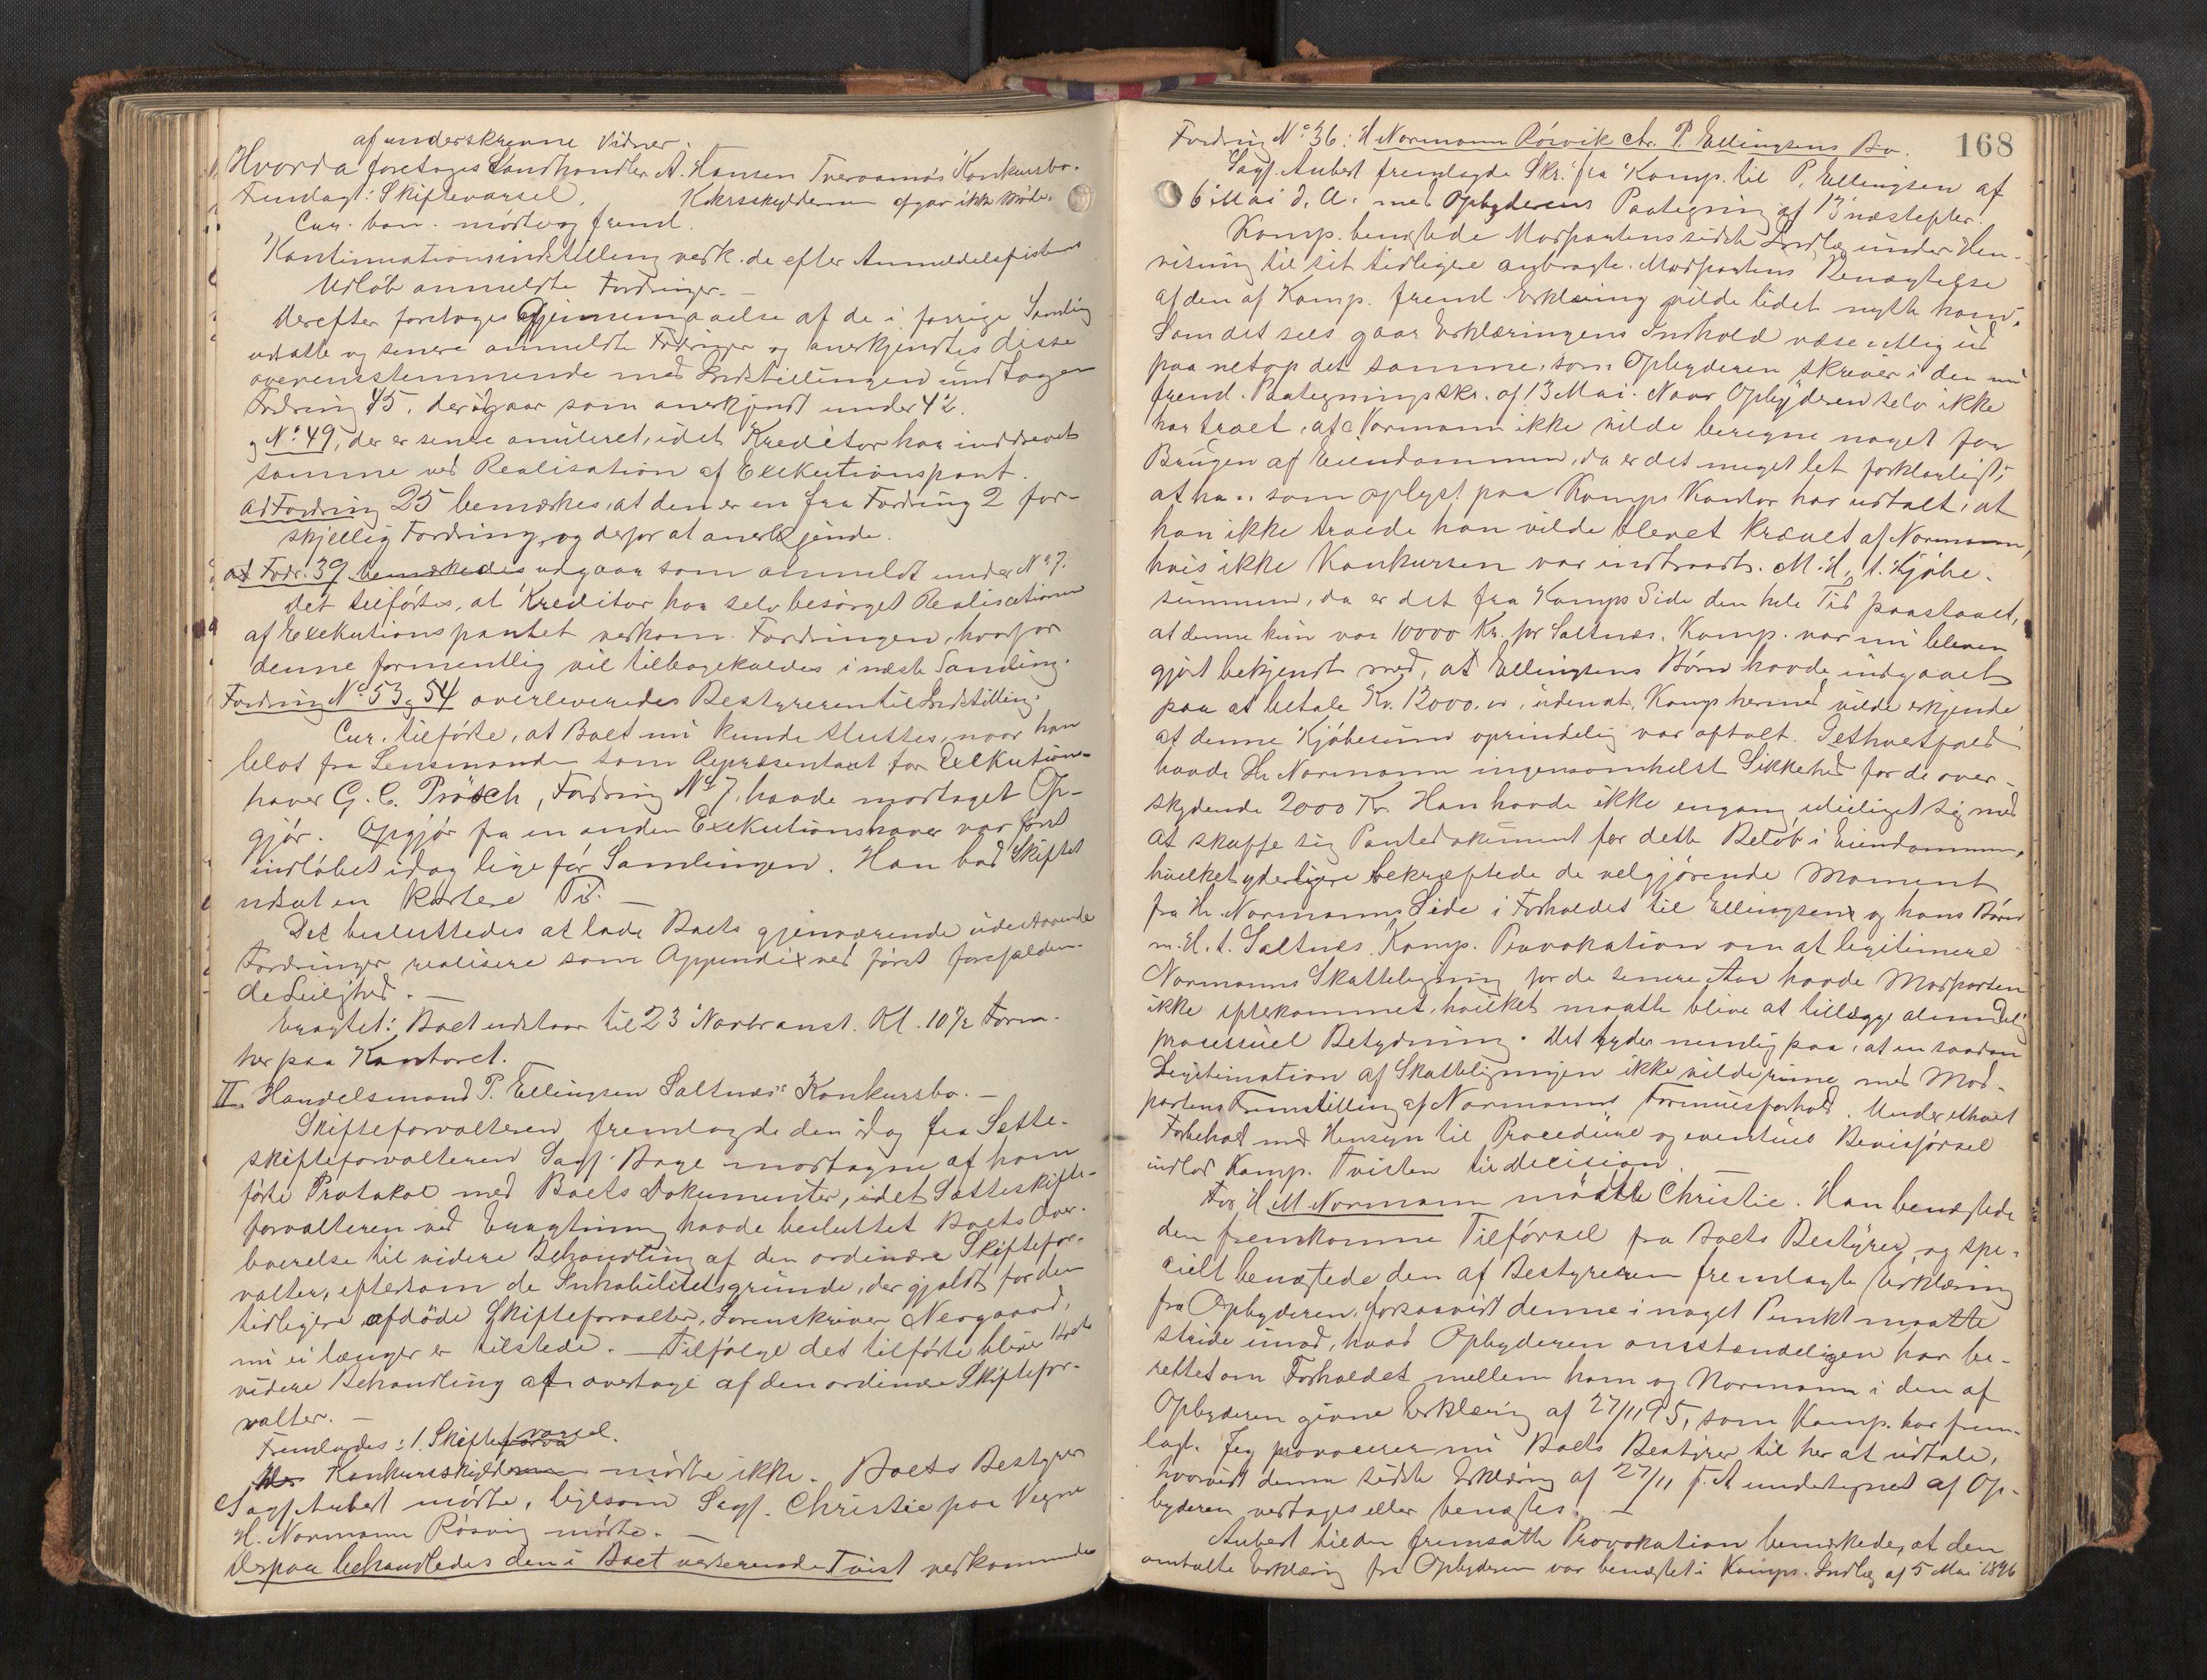 af underskrevne Vidner.
Hvorda foretoges Landhandler A. Hansen Tveraanæs Konkursbo.
Fremlagt: Skiftevarsel. Kkrsskylderen afgav ikke Møde.
Cur. bon. mødte og freml.
Kontinuationsindstilling vedk. de efter Anmeldelsesfristens
Udløb anmeldte Fordringer. —
Derefter foretoges Gjennemgaaelse af de i forrige Samling
udsatte og senere anmeldte Fordringer og anerkjendtes disse
overensstemmende med Indstillingen undtagen
Fordring 45, der udgaar som anerkjendt under 42.
og No. 49, der er senere anuleret, idet Kreditor har inddrevet
samme ved Realisation af Exekutionspant.
ad Fordring 25 bemærkes, at den er en fra Fordring 2 for-
skjellig Fordring, og derfor at anerkjende.
ad Fodr. 39 bemærkedes udgaar som anmeldt under No 7.
Det tilførtes, at Kreditor har selv besørget Realisationen
af Exekutionspantet vedkom. Fordringen, hvorfor
denne formentlig vil tilbagekaldes i næste Samling.
Fordring No. 53 og 54 overleveredes Bestyreren til Indstilling.
Cur. tilførte, at Boet nu kunde sluttes, naar han
blot fra Lensmanden som Repræsentant for Exekutions-
haver G. C. Prösch, Fordring No 7, havde modtaget Op-
gjør. Opgjør fra en anden Exekutionshaver var først
indløbet idag lige før Samlingen. Han bad Skiftet
udsat en kortere Tid. —
Det besluttedes at lade Boets gjenværende udestaaende
Fordringer realisere som Appendix ved først forefalden-
de Leilighed. —
Eragtet: Boet udstaar til 23 Novbr anst. Kl. 10½ Form.
her paa Kontoret. —
II. Handelsmand P. Ellingsen Saltnæs's Konkursbo. —
Skifteforvalteren fremlagde den idag fra Sætte-
skifteforvalteren Sagf. Bage modtagne af ham
førte Protokol med Boets Dokumenter, idet Sætteskifte-
forvalteren ved Eragtning havde besluttet Boets Over-
leverelse til videre Behandling af den ordinære Skiftefor-
valter, eftersom de Inhabilitetsgrunde, der gjaldt for den
tidligere afdøde Skifteforvalter, Sorenskriver Neegaard,
nu ei længer er tilstede. — Tilfølge det tilførte bliver Boets
videre Behandling at overtage af den ordinære Skiftefor-
valter. —
Fremlagdes: 1. Skiftevarsel.
Konkursskylderen mødte ikke. Boets Bestyrer
Sagf. Aubert mødte, ligesom Sagf. Christie paa Vegne
H. Normann Rösvig mødte. —
Derpaa behandledes den i Boet verserende Tvist vedkommende
168
Fordring No. 36: H Normann Rösvik ctr. P. Ellingsens Bo.
Sagf. Aubert fremlagde Skr. fra Komp. til P. Ellingsen af
6 Mai d. A. med Opbyderens Paategning af 13 næstefter.
Komp. benegtede Modpartens sidste Indlæg under Hen-
visning til sit tidligere anbragte. Modpartens Benægtelse
af den af Komp. freml. Erklæring vilde lidet nytte ham.
Som det sees gaar Erklæringens Indhold væsentlig ud
paa netop det samme, som Opbyderen skriver i den nu
freml. Paategningsskr. af 13 Mai. Naar Opbyderen selv ikke
har troet, at Normann ikke vilde beregne noget for
Brugen af Eiendommen, da er det meget let forklarligt,
at han, som oplyst paa Komps Kontor har udtalt, at
han ikke troede han vilde blevet krævet af Normann,
hvis ikke Konkursen var indtraadt. M. H. t. Kjøbe-
summen, da er det fra Komps Side den hele Tid paastaaet,
at denne kun var 10000 Kr. for Saltnæs. Komp. var nu bleven
gjort bekjendt med, at Ellingsens Børn havde indgaaet
paa at betale Kr. 12000.00, uden at Komp hermed vilde erkjende
at denne Kjøbesum oprindelig var aftalt. I ethvertfald
havde Hr Normann ingensomhelst Sikkerhed for de over-
skydende 2000 Kr. Han havde ikke engang uleiliget sig med
at skaffe sig Pantedokument for dette Beløb i Eiendommen,
hvilket yderligere bekræftede de velgjørende Moment
fra Hr. Normanns Side i Forholdet til Ellingsen og hans Børn
m. H. t. Saltnes. Komp. Provokation om at legitimere
Normanns Skatteligning for de senere Aar havde Modparten
ikke efterkommet, hvilket maatte blive at tillægge almindelig
processuel Betydning. Det tyder nemlig paa, at en saadan
Legitimation af Skatteligningen ikke vilde rime med Mod-
partens Fremstilling af Normanns Formuesforhold. Under ethvert
Forbehold med Hensyn til Procedure og eventuel Bevisførsel
indlod Komp. Tvisten til Decision.
For H M Normann mødte Christie. Han benægtede
den fremkomne Tilførsel fra Boets Bestyrer, og spe-
cielt benægtede den af Bestyreren fremlagte Erklæring
fra Opbyderen, forsaavidt denne i noget Punkt maatte
stride imod, hvad Opbyderen omstændeligen har be-
rettet om Forholdet mellem ham og Normann i den af
Opbyderen givne Erklæring af 27/11 95, som Komp. har frem-
lagt. Jeg provocerer nu Boets Bestyrer til her at udtale,
hvorvidt denne sidste Erklæring af 27/11 f. A undertegnet af Op-
byderen vedtages eller benægtes. —
Aubert til den fremsatte Provokation bemærkede, at den
omtalte Erklæring fra Opbyderen var benægtet i Komps. Indlæg af 5 Mai 1896